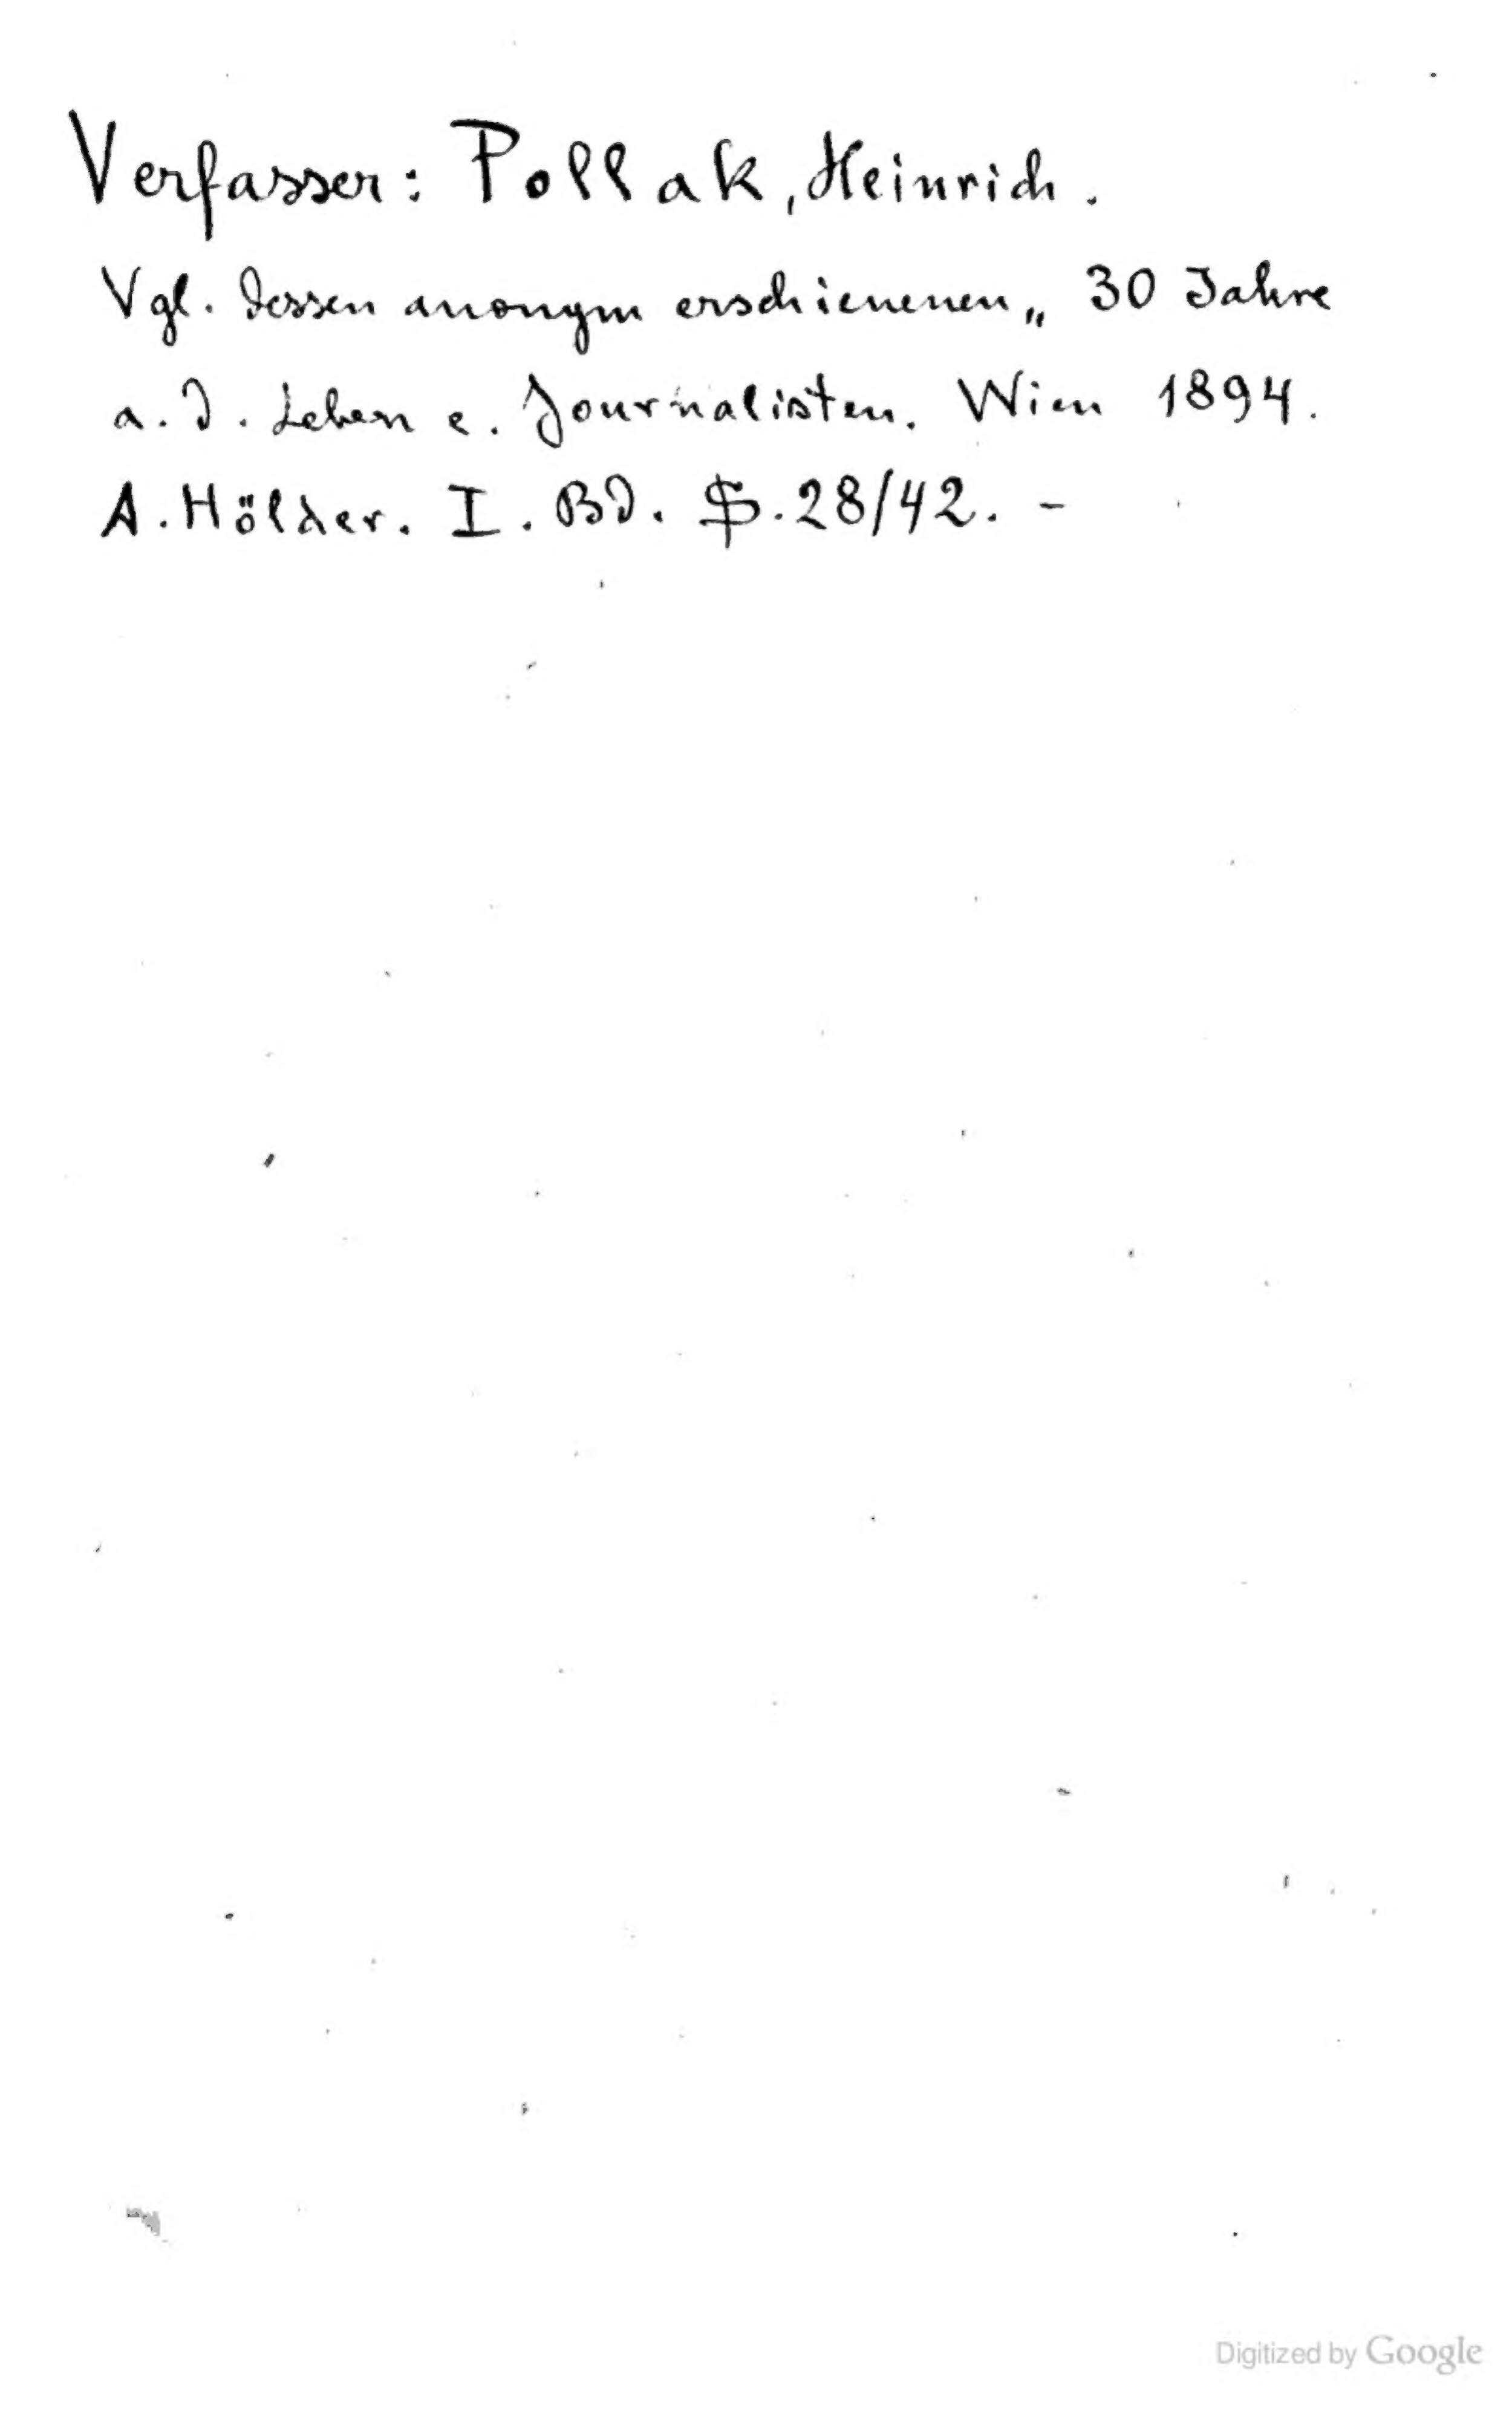 Verfasser: Pollak, Heinrich.
Vgl. dessen anonym erschienenen „ 30 Jahre
a. d. Leben e. Journalisten. Wien 1894.
A. Hölder. I. Bd. S. 28/42. -
Digitized by Google